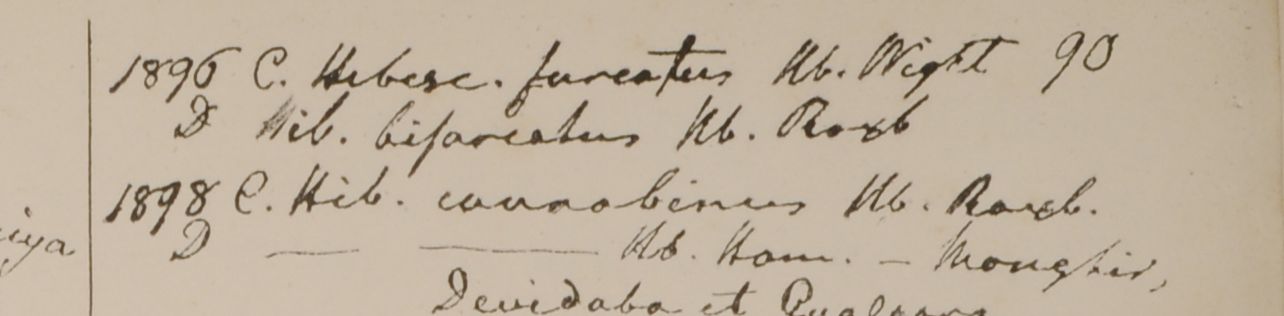 1896 C. Hibesc. furcatus Hb. Wight 90
D Hib. bifurcatus Hb. Roxb
1898 C. Hib. cannabinus Hb. Roxb.
iya
D — — Hb. Ham. – Monghir,
Devidaba et